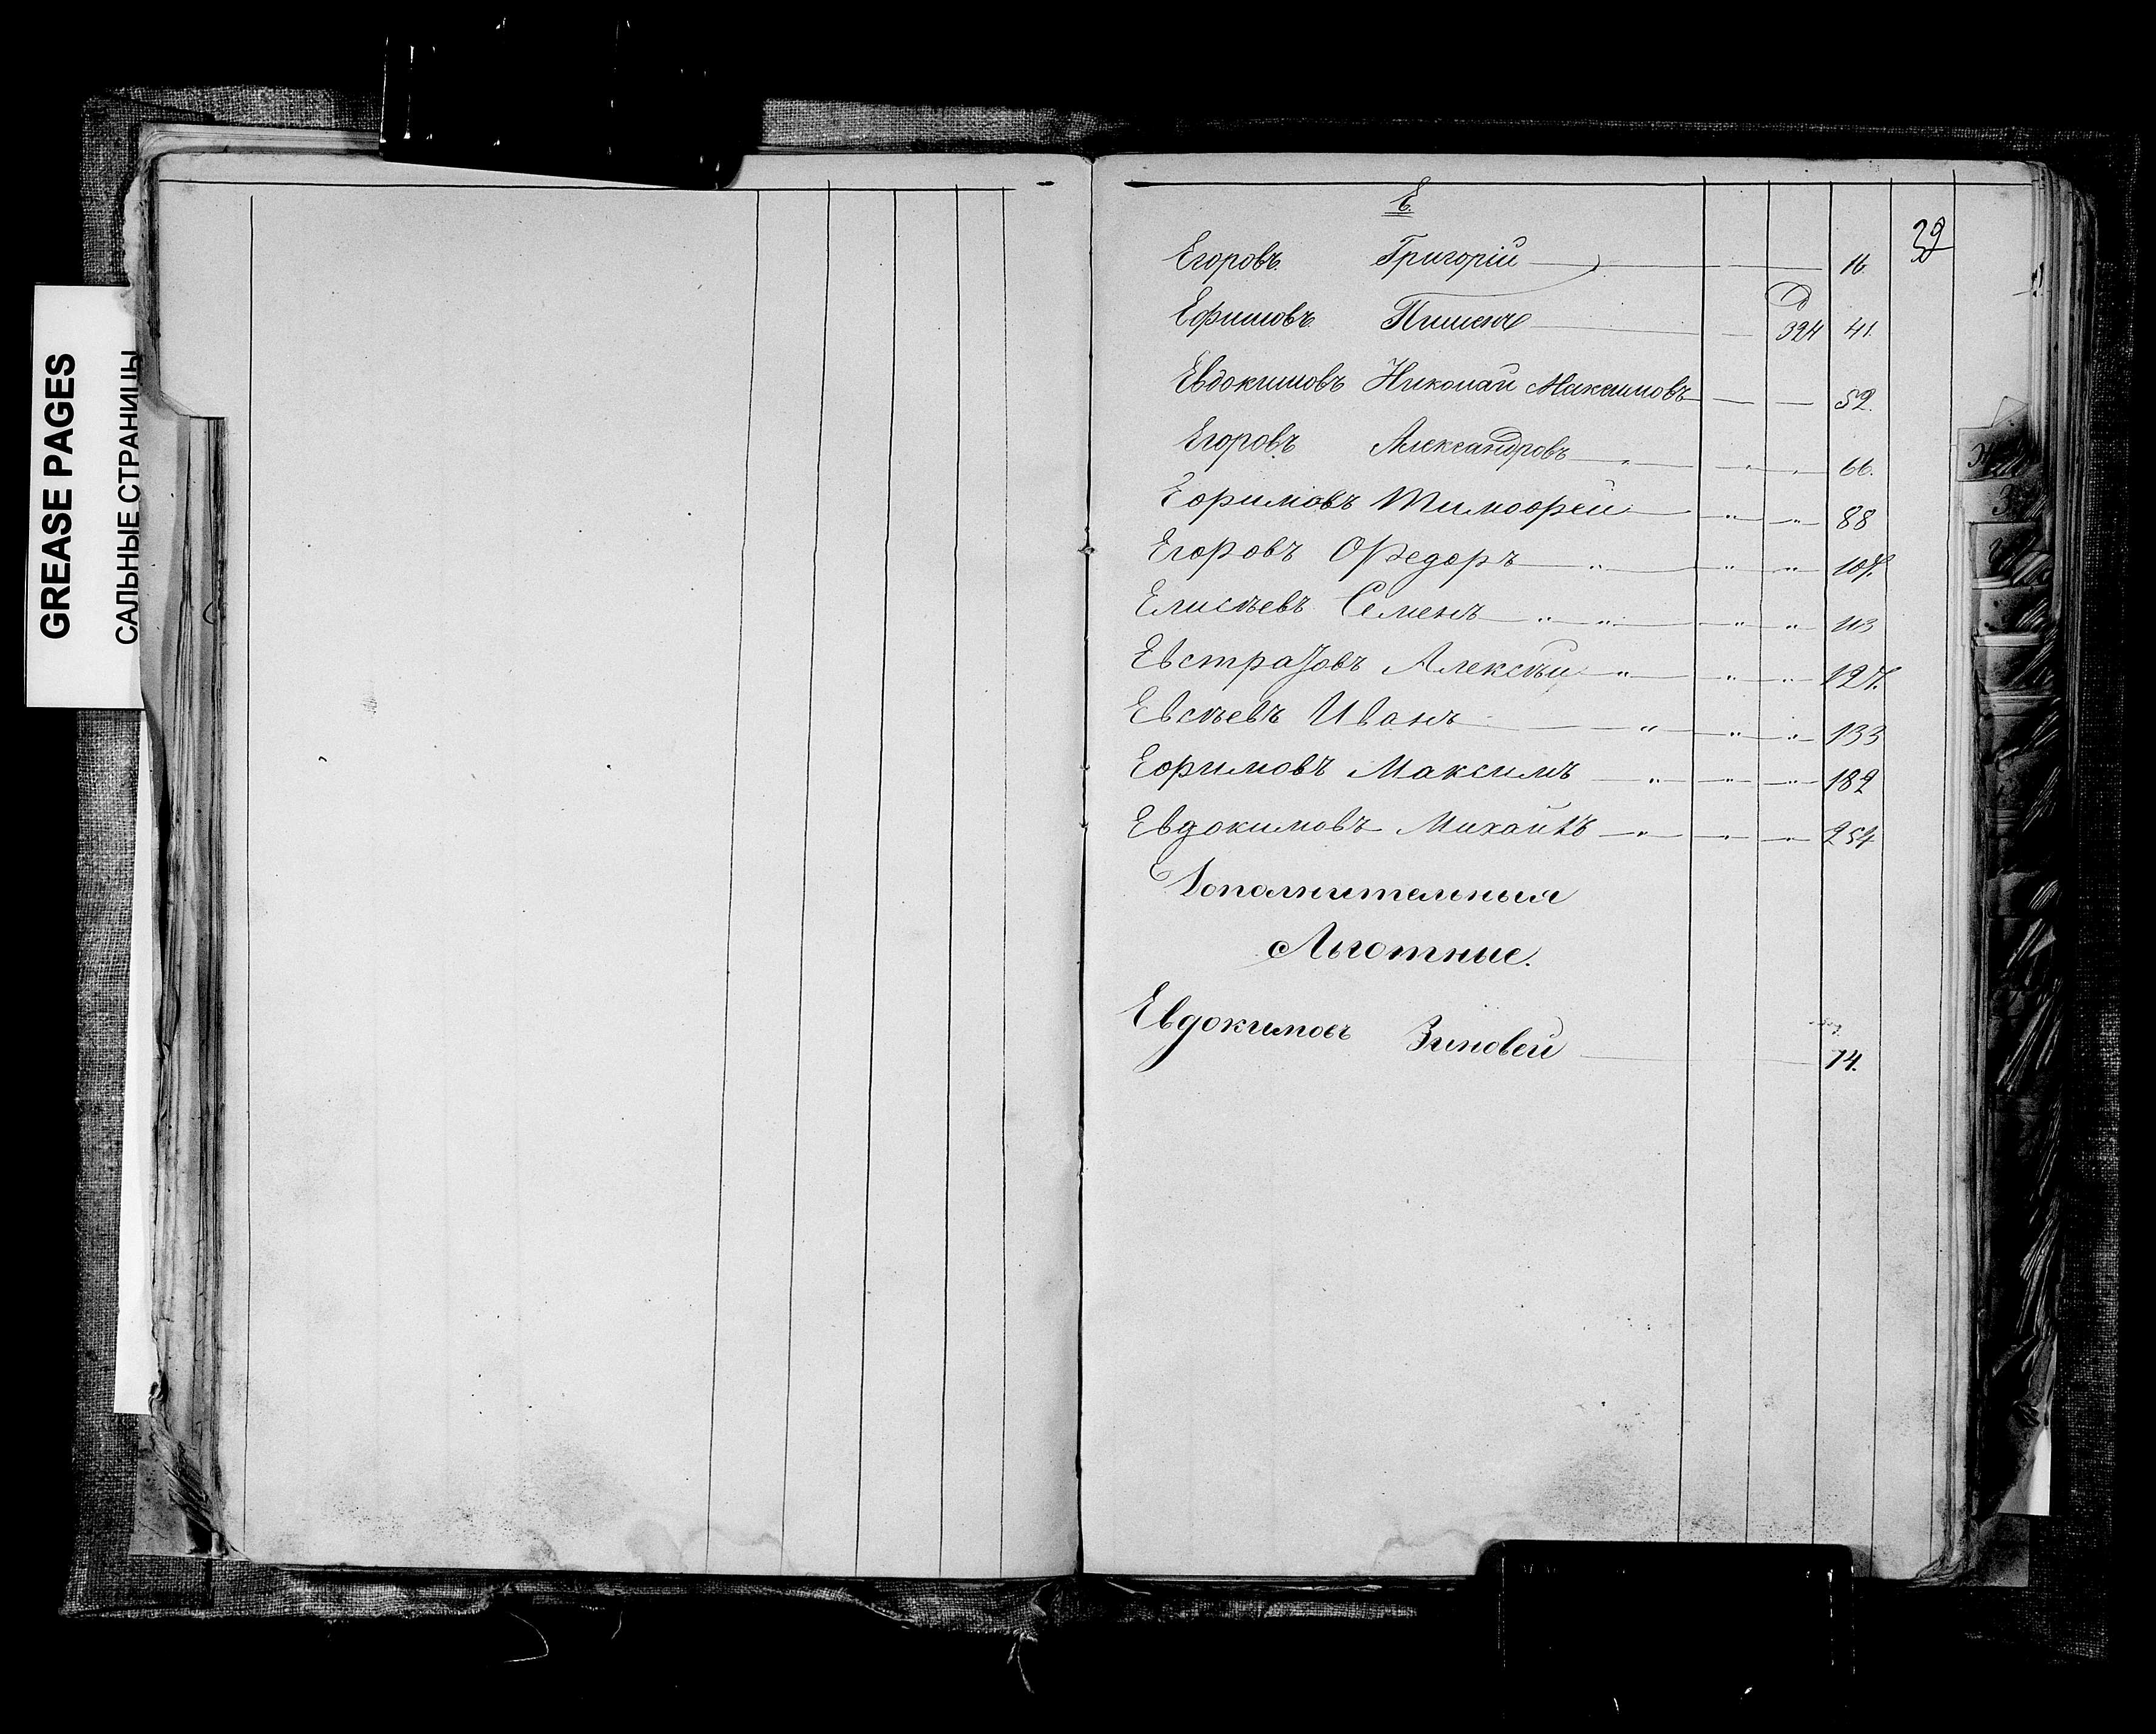 GREASE PAGES
САЛЬНЫЕ СТРАНИЦЫ
Е.
32
Егоровъ Григорій 16.
Ефимовъ Пименъ 394 41.
Евдокимовъ Николай Максимовъ 52.
Егоровъ Александровъ 66.
Ефимовъ Тимофей " " 88
Егоровъ Федоръ " " " 107.
Елисѣевъ Семенъ " " " " 113
Евстратовъ Алексѣй " " " 127.
Евсѣевъ Иванъ " " " 133
Ефимовъ Максимъ " " " 182
Евдокимовъ Михаилъ " " " 254
Дополнительныя
Льготные.
Евдокимовъ Зиновей 74.
З